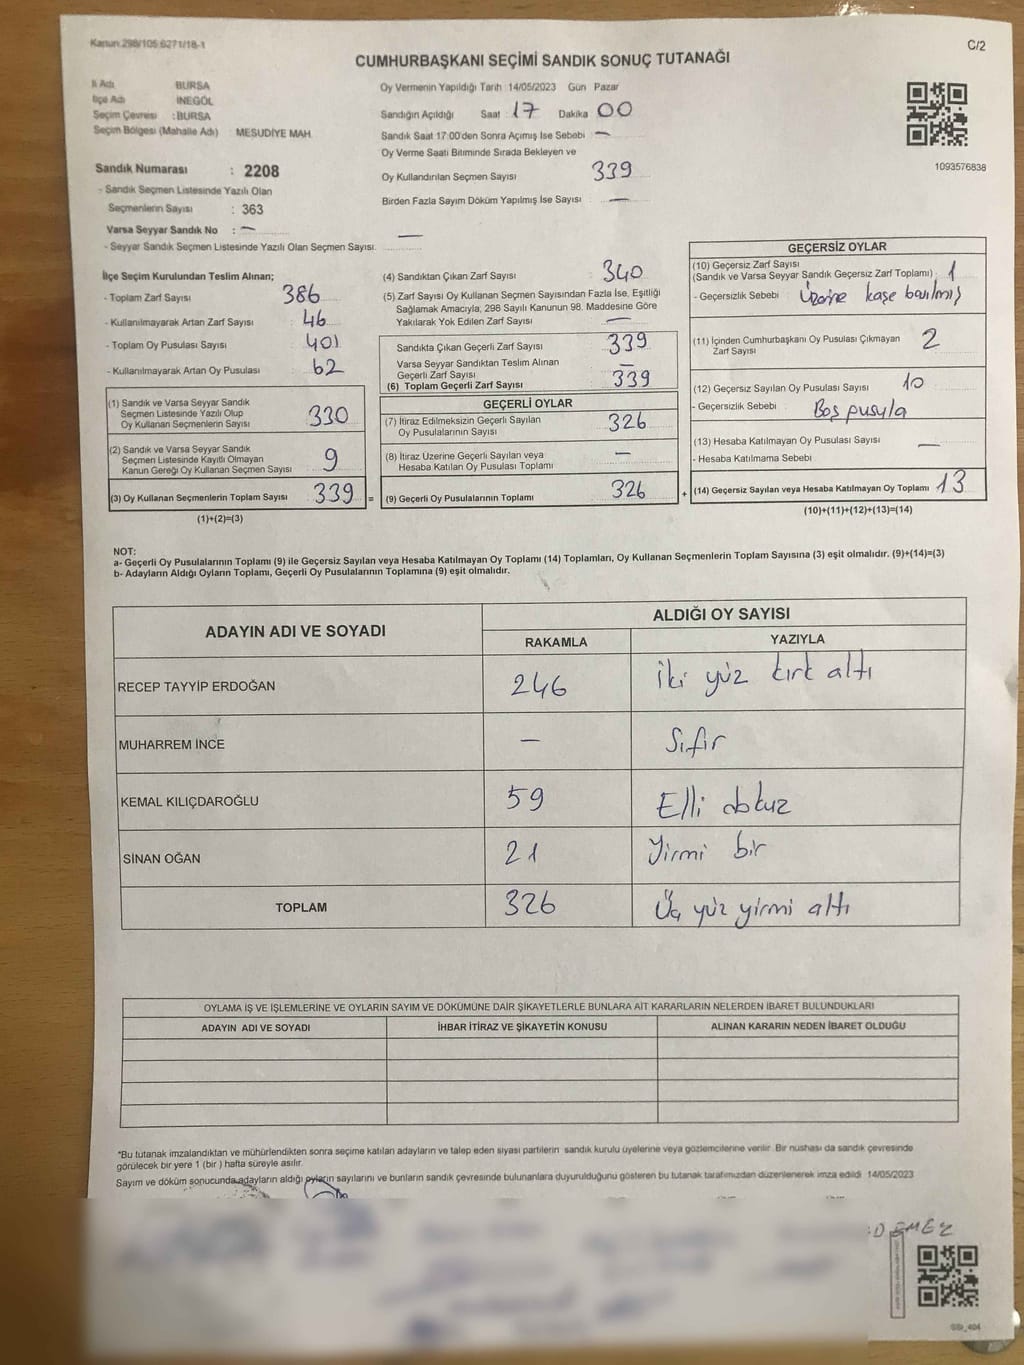 Kanun 298/105 6271/18-1
C/2
CUMHURBAŞKANI SEÇİMİ SANDIK SONUÇ TUTANAĞI
İl Adı BURSA
İlçe Adı İNEGÖL
Seçim Çevresi : BURSA
Seçim Bölgesi (Mahalle Adı) : MESUDİYE MAH.
Sandık Numarası : 2208
- Sandık Seçmen Listesinde Yazılı Olan
Seçmenlerin Sayısı : 363
Varsa Seyyar Sandık No : —
- Seyyar Sandık Seçmen Listesinde Yazılı Olan Seçmen Sayısı: —
Oy Vermenin Yapıldığı Tarih : 14/05/2023 Gün Pazar
Sandığın Açıldığı Saat : 17 Dakika 00
Sandık Saat 17:00'den Sonra Açımış İse Sebebi : —
Oy Verme Saati Bitiminde Sırada Bekleyen ve
Oy Kullandırılan Seçmen Sayısı 339
Birden Fazla Sayım Döküm Yapılmış İse Sayısı : —
1093576838
İlçe Seçim Kurulundan Teslim Alınan;
- Toplam Zarf Sayısı : 386
- Kullanılmayarak Artan Zarf Sayısı : 46
- Toplam Oy Pusulası Sayısı : 401
- Kullanılmayarak Artan Oy Pusulası : 62
(1) Sandık ve Varsa Seyyar Sandık
Seçmen Listesinde Yazılı Olup
Oy Kullanan Seçmenlerin Sayısı 330
(2) Sandık ve Varsa Seyyar Sandık
Seçmen Listesinde Kayıtlı Olmayan
Kanun Gereği Oy Kullanan Seçmen Sayısı 9
(3) Oy Kullanan Seçmenlerin Toplam Sayısı 339 =
(1)+(2)=(3)
(4) Sandıktan Çıkan Zarf Sayısı : 340
(5) Zarf Sayısı Oy Kullanan Seçmen Sayısından Fazla İse, Eşitliği
Sağlamak Amacıyla, 298 Sayılı Kanunun 98. Maddesine Göre
Yakılarak Yok Edilen Zarf Sayısı : —
Sandıkta Çıkan Geçerli Zarf Sayısı 339
Varsa Seyyar Sandıktan Teslim Alınan
Geçerli Zarf Sayısı —
(6) Toplam Geçerli Zarf Sayısı 339
GEÇERLİ OYLAR
(7) İtiraz Edilmeksizin Geçerli Sayılan
Oy Pusulalarının Sayısı 326
(8) İtiraz Üzerine Geçerli Sayılan veya
Hesaba Katılan Oy Pusulası Toplamı —
(9) Geçerli Oy Pusulalarının Toplamı 326 +
GEÇERSİZ OYLAR
(10) Geçersiz Zarf Sayısı
(Sandık ve Varsa Seyyar Sandık Geçersiz Zarf Toplamı) : 1
- Geçersizlik Sebebi : Üzerine kaşe basılmış
(11) İçinden Cumhurbaşkanı Oy Pusulası Çıkmayan
Zarf Sayısı 2
(12) Geçersiz Sayılan Oy Pusulası Sayısı 10
- Geçersizlik Sebebi : Boş pusula
(13) Hesaba Katılmayan Oy Pusulası Sayısı : —
- Hesaba Katılmama Sebebi
(14) Geçersiz Sayılan veya Hesaba Katılmayan Oy Toplamı 13
(10)+(11)+(12)+(13)=(14)
NOT:
a- Geçerli Oy Pusulalarının Toplamı (9) ile Geçersiz Sayılan veya Hesaba Katılmayan Oy Toplamı (14) Toplamları, Oy Kullanan Seçmenlerin Toplam Sayısına (3) eşit olmalıdır. (9)+(14)=(3)
b- Adayların Aldığı Oyların Toplamı, Geçerli Oy Pusulalarının Toplamına (9) eşit olmalıdır.
ADAYIN ADI VE SOYADI
ALDIĞI OY SAYISI
RAKAMLA YAZIYLA
RECEP TAYYİP ERDOĞAN 246 İki yüz kırk altı
MUHARREM İNCE — Sıfır
KEMAL KILIÇDAROĞLU 59 Elli dokuz
SİNAN OĞAN 21 Yirmi bir
TOPLAM 326 Üç yüz yirmi altı
OYLAMA İŞ VE İŞLEMLERİNE VE OYLARIN SAYIM VE DÖKÜMÜNE DAİR ŞİKAYETLERLE BUNLARA AİT KARARLARIN NELERDEN İBARET BULUNDUKLARI
ADAYIN ADI VE SOYADI İHBAR İTİRAZ VE ŞİKAYETİN KONUSU ALINAN KARARIN NEDEN İBARET OLDUĞU
*Bu tutanak imzalandıktan ve mühürlendikten sonra seçime katılan adayların ve talep eden siyasi partilerin sandık kurulu üyelerine veya gözlemcilerine verilir. Bir nüshası da sandık çevresinde
görülecek bir yere 1 (bir ) hafta süreyle asılır.
Sayım ve döküm sonucunda adayların aldığı oyların sayılarını ve bunların sandık çevresinde bulunanlara duyurulduğunu gösteren bu tutanak tarafımızdan düzenlenerek imza edildi 14/05/2023